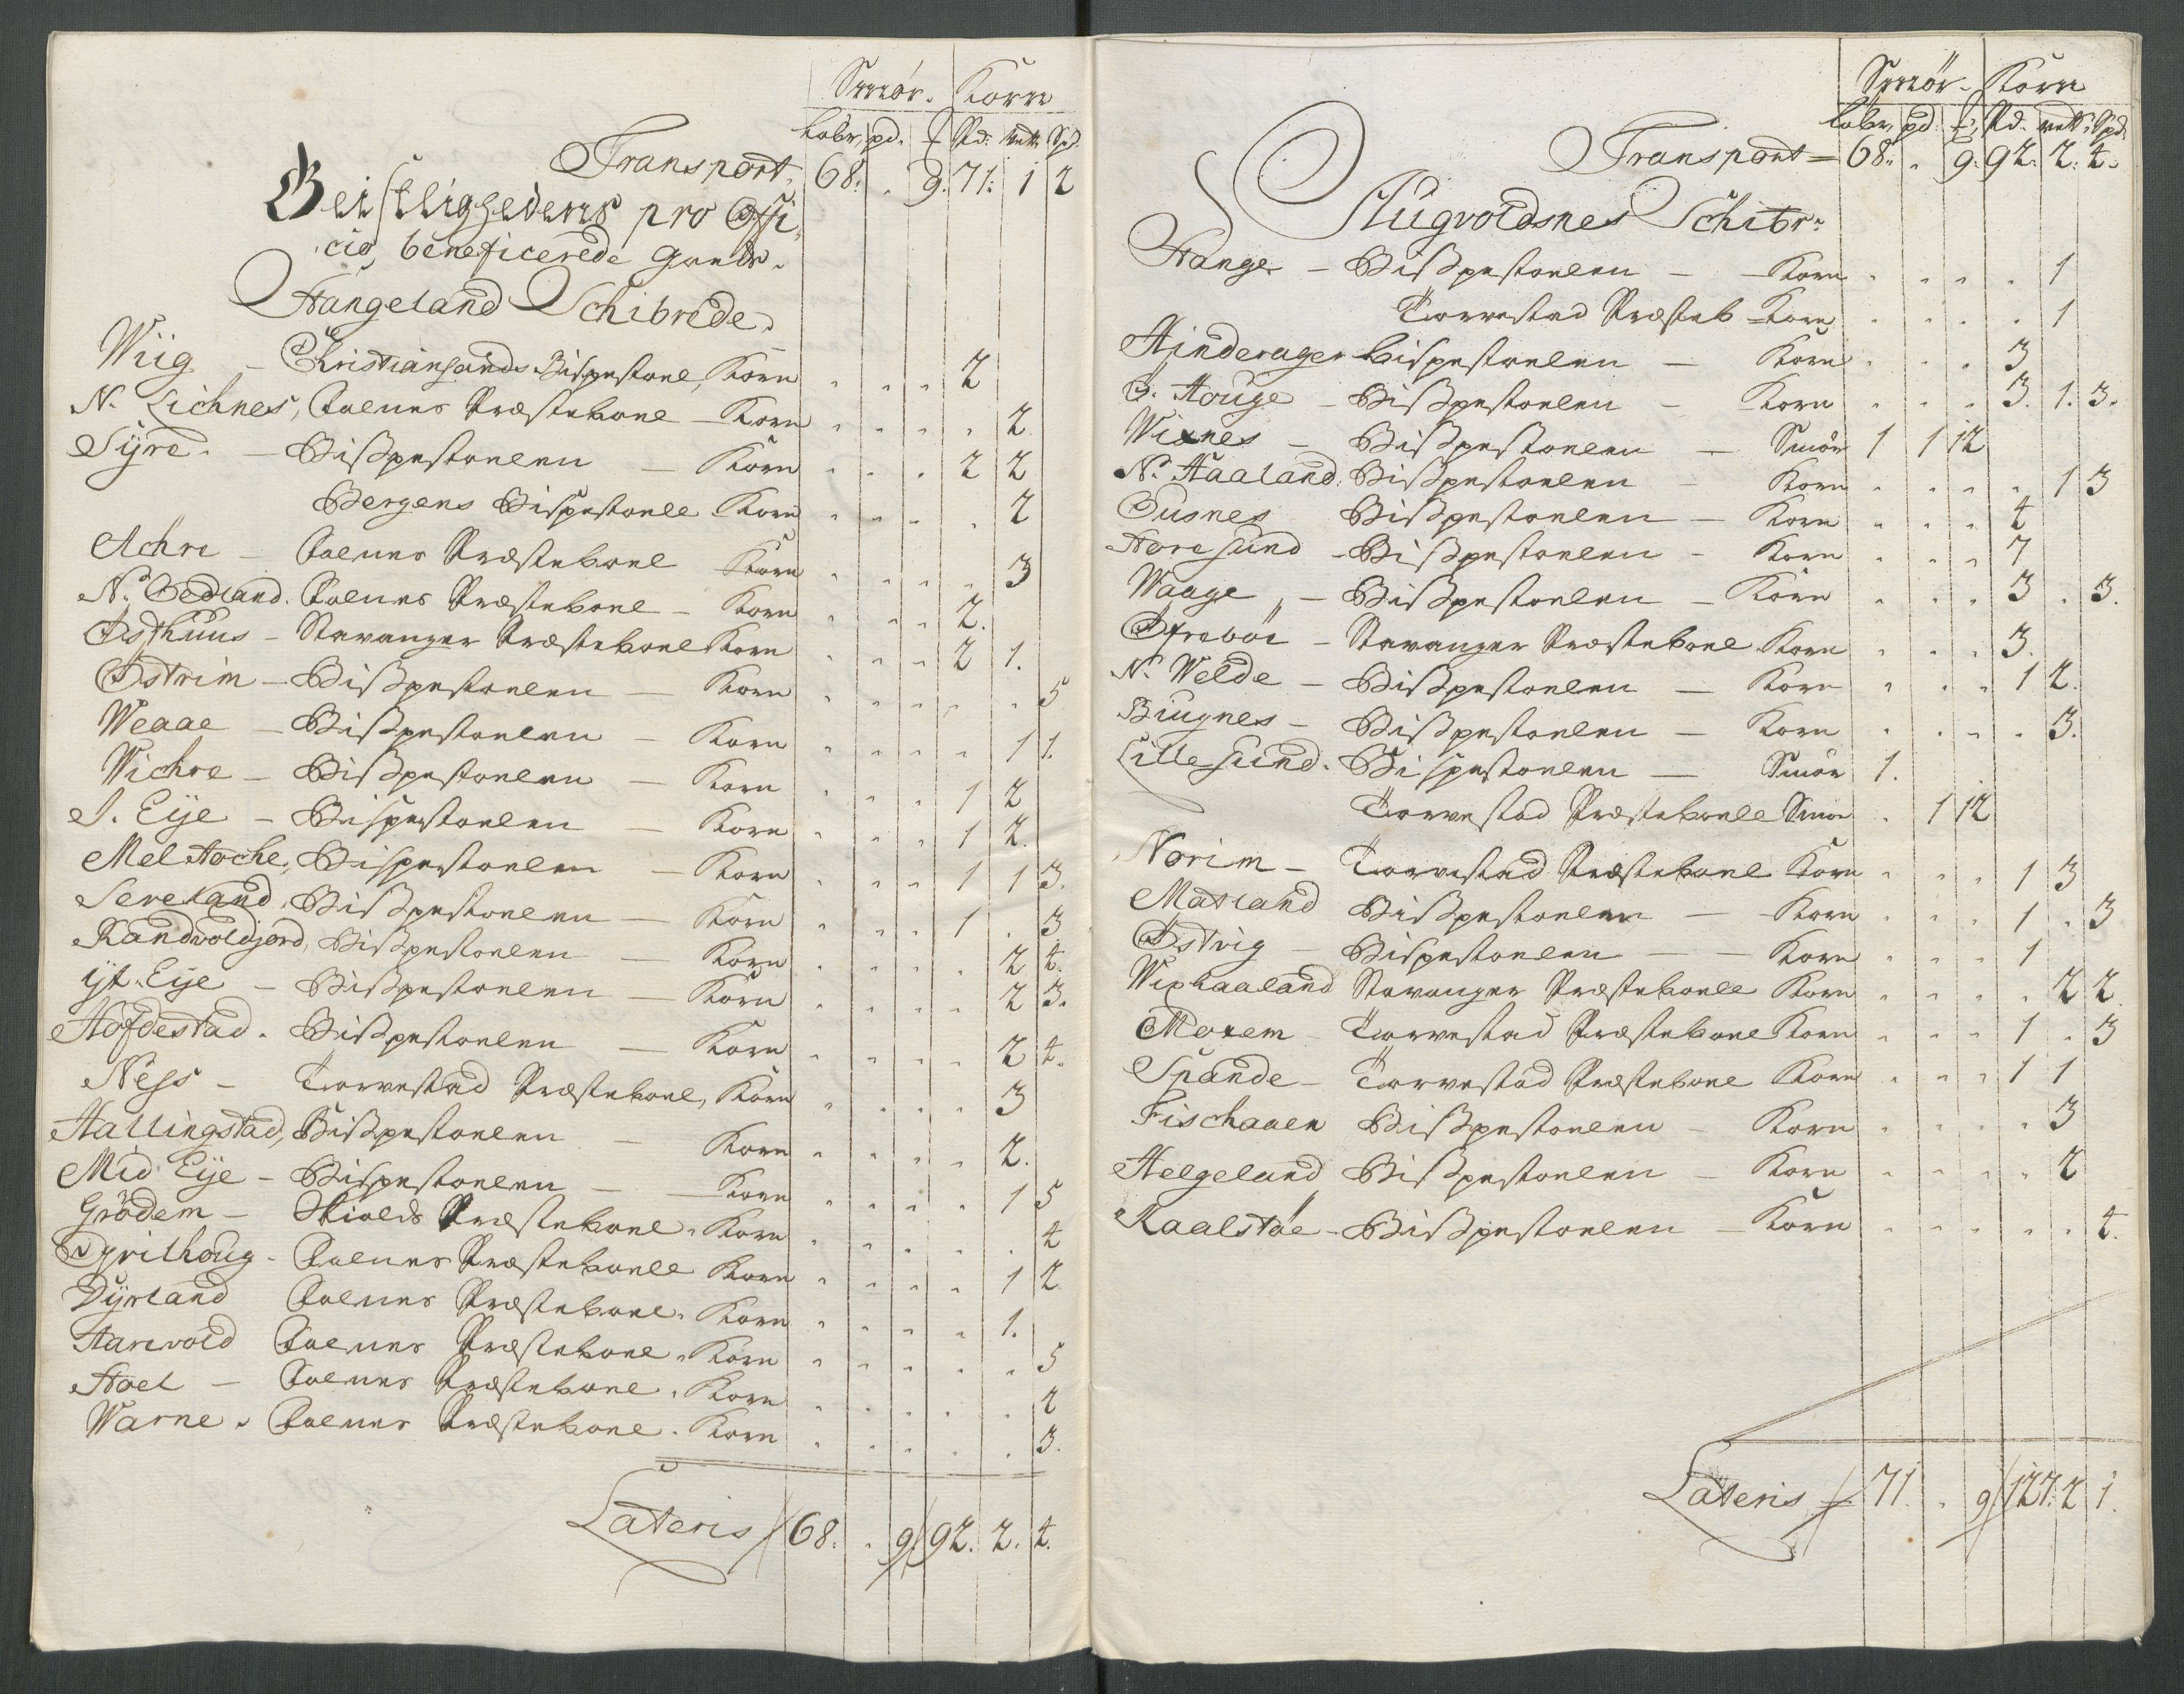 Smör. Korn
Løbr, pd. ℔ Pd. vett. Spd.
Transport, 68. " 9. 71. 1 2
Geistlighedens pro Offi-
cio beneficerede Goeds.
Hangeland Schibrede.
Wiig - Christiansands Bispestoel, Korn " " " 2
N. Lichnes, Aalnes Præsteboel - Korn " " " " 2.
Syre. - Bißpestoelen - Korn " " " 2 2
Bergens Bispestoell Korn " " " " 2
Achre - Aalnes Præsteboel Korn " " " " 3
N. Vedland. Aalnes Præsteboel - Korn " " " 2.
Østhuus - Stavanger Præsteboel Korn " " " 2 1.
Østrim - Bißpestoelen - Korn " " " " " 5
Weaae - Bißpestoelen - Korn " " " " 1 1.
Wichre - Bißpestoelen - Korn " " " 1 2
S. Eye - Bispestoelen - Korn " " " 1 2.
Mel Hoche, Bispestoelen - Korn " " " 1 1 3.
Sereland, Bißpestoelen - Korn " " " 1 . 3
Randvoldjord, Bißpestoelen - Korn " " " " 2 4.
yt. Eye - Bißpestoelen - Korn " " " " 2 3.
Hofdestad. Bißpestoelen - Korn " " " " 2 4.
Ness - Torvestad Præsteboel, Korn " " " " 3
Hallingstad, Bißpestoelen - Korn " " " " 2.
Mid Eye - Bispestoelen - Korn " " " " 1 5
Grödem - Skiolds Præsteboel. Korn " " " " " 4
Spilhoug - Aalnes Præsteboell Korn " " " " 1 2
Dyrland Aalnes Præsteboel. Korn " " " " 1.
Harevold Aalnes Præsteboel. Korn " " " " " 5
Hoel - Aalnes Præsteboel. Korn " " " " " 2
Warne. Aalnes Præsteboel. Korn " " " " " 3.
Lateris 68. " 9 92. 2. 4.
Smör. Korn
Løbr, pd. ℔ Pd. vett. Spd.
Transport = 68. " 9. 92. 2. 4.
Augvoldsnes Schibr:
Hange - Bißpestoelen - Korn " " " " 1
Torvestad Præsteb Korn " " " " 1
Hinderager Bispestoelen - Korn " " " 3
S. Houge - Bißpestoelen - Korn " " " 3. 1. 3.
Wixnes - Bißpestoelen - Smör 1 1 12
N. Haaland. Bißpestoelen - Korn " " " " 1 3
Susnes Bißpestoelen - Korn " " " 4
Horesund - Bißpestoelen - Korn " " " 7
Waage, - Bißpestoelen - Korn " " " 3 . 3.
Øfreböe - Stavanger Præsteboel Korn " " " 3.
N. Welde - Bißpestoelen - Korn " " " 1 2.
Biugnes - Bißpestoelen - Korn " " " " 3.
Lillesund. Bispestoelen - Smör 1.
Torvestad Præsteboell Smör " 1 12
Norim - Torvestad Præsteboel Korn " " " 1 3
Matland Bißpestoelen - Korn " " " 1 . 3
Østvig - Bispestoelen - - Korn " " " 1
Wixhaaland Stavanger Præsteboell Korn " " " " 2 2
Moxem - Torvestad Præsteboel Korn " " " 1 . 3
Spande - Torvestad Præsteboel Korn " " " 1 1
Fischaaen Bißpestoelen - Korn " " " " 3
Helgeland Bißpestoelen - Korn " " " " 2
Kaalstöe - Bißpestoelen - Korn " " " " " 4.
Lateris 71. " 9 127. 2 1.